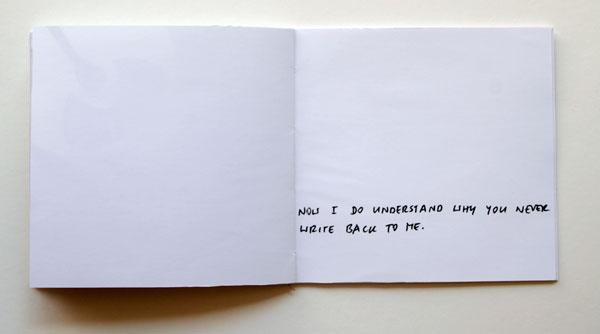 NOW I DO UNDERSTAND WHY YOU NEVER
WRITE BACK TO ME.